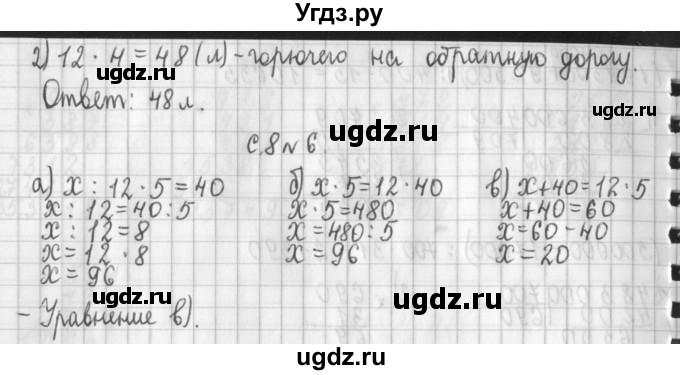 Угдз.ру
2) 12 · 4 = 48 (л) - горючего на обратную дорогу.
ugdz.ru ugdz.ru
Ответ: 48 л.
ugdz.ru ugdz.ru
с.8 № 6.
а) x : 12 · 5 = 40
x : 12 = 40 : 5
x : 12 = 8
x = 12 · 8
x = 96
б) x · 5 = 12 · 40
x · 5 = 480
x = 480 : 5
x = 96
в) x + 40 = 12 · 5
x + 40 = 60
x = 60 - 40
x = 20
ugdz.ru ugdz.ru
- Уравнение в).
ugdz.ru
ugdz.ru